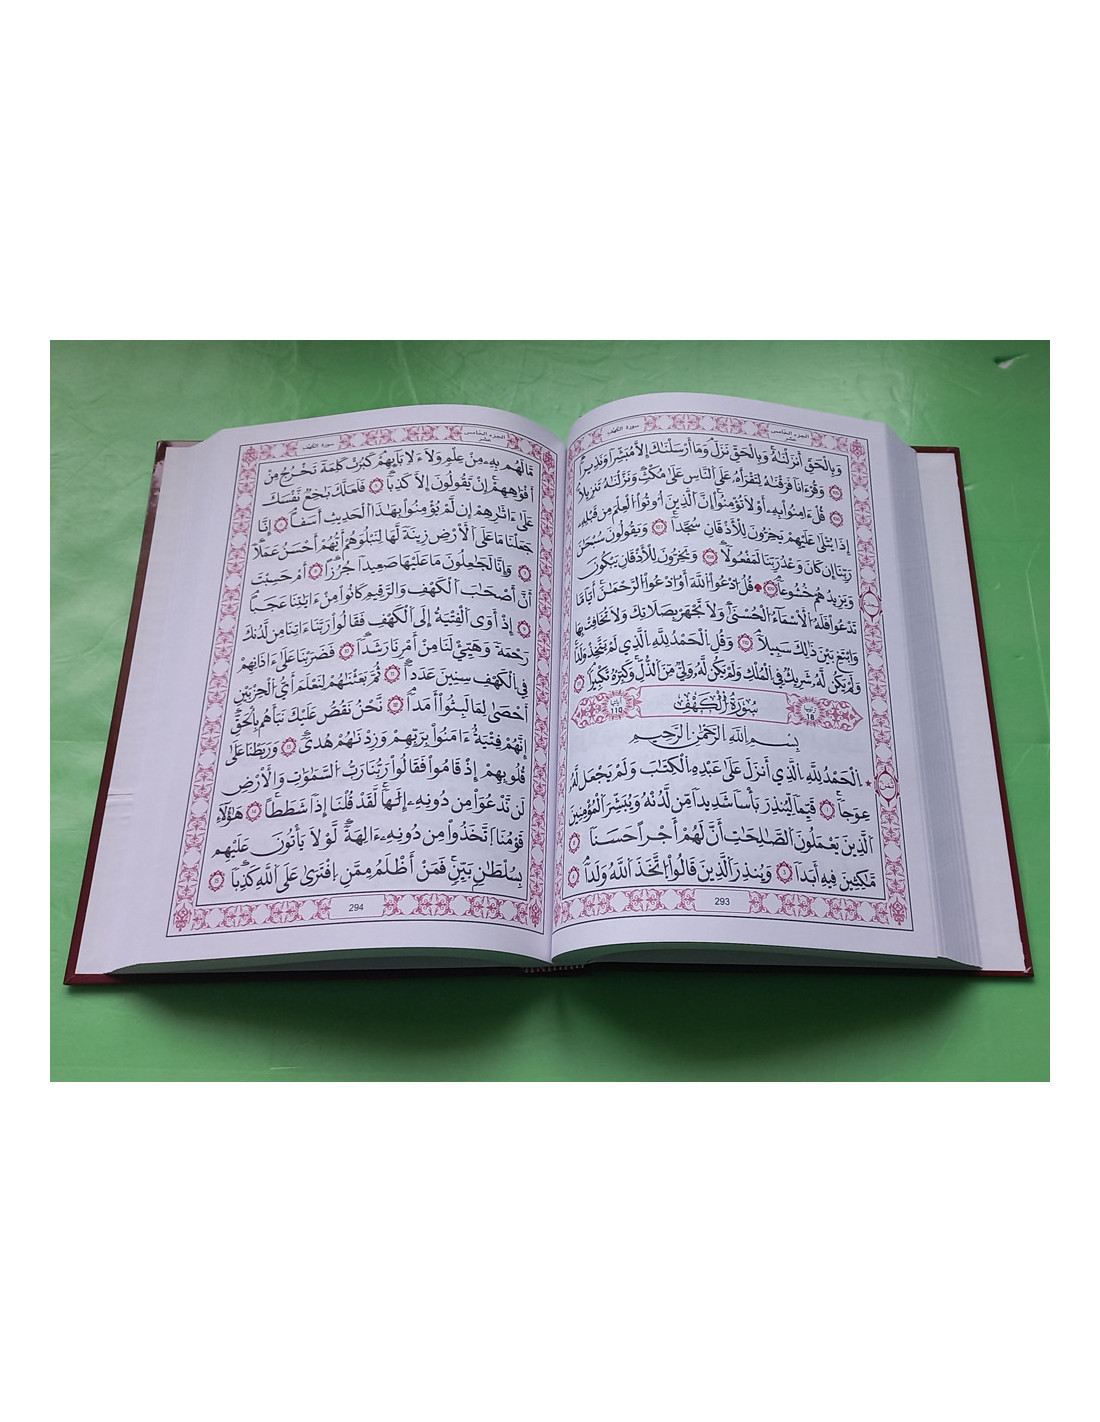 سورة الكهف
الجزء الخامس
عشر
وَبِالْحَقِّ أَنزَلْنَاهُ وَبِالْحَقِّ نَزَلَ وَمَا أَرْسَلْنَاكَ إِلَّا مُبَشِّرًا وَنَذِيرًا
105 وَقُرْءَانًا فَرَقْنَاهُ لِتَقْرَأَهُ عَلَى النَّاسِ عَلَىٰ مُكْثٍ وَنَزَّلْنَاهُ تَنزِيلًا
106 قُلْ ءَامِنُوا بِهِ أَوْ لَا تُؤْمِنُوا إِنَّ الَّذِينَ أُوتُوا الْعِلْمَ مِن قَبْلِهِ
إِذَا يُتْلَىٰ عَلَيْهِمْ يَخِرُّونَ لِلْأَذْقَانِ سُجَّدًا 107 وَيَقُولُونَ سُبْحَانَ
رَبِّنَا إِن كَانَ وَعْدُ رَبِّنَا لَمَفْعُولًا 108 وَيَخِرُّونَ لِلْأَذْقَانِ يَبْكُونَ
وَيَزِيدُهُمْ خُشُوعًا 109 قُلِ ادْعُوا اللَّهَ أَوِ ادْعُوا الرَّحْمَٰنَ أَيًّا مَّا
تَدْعُوا فَلَهُ الْأَسْمَاءُ الْحُسْنَىٰ وَلَا تَجْهَرْ بِصَلَاتِكَ وَلَا تُخَافِتْ بِهَا
وَابْتَغِ بَيْنَ ذَٰلِكَ سَبِيلًا 110 وَقُلِ الْحَمْدُ لِلَّهِ الَّذِي لَمْ يَتَّخِذْ وَلَدًا
وَلَمْ يَكُن لَّهُ شَرِيكٌ فِي الْمُلْكِ وَلَمْ يَكُن لَّهُ وَلِيٌّ مِّنَ الذُّلِّ وَكَبِّرْهُ تَكْبِيرًا 111
18
سُورَةُ الْكَهْفِ
110
بِسْمِ اللَّهِ الرَّحْمَٰنِ الرَّحِيمِ
الْحَمْدُ لِلَّهِ الَّذِي أَنزَلَ عَلَىٰ عَبْدِهِ الْكِتَابَ وَلَمْ يَجْعَل لَّهُ
عِوَجًا 1 قَيِّمًا لِّيُنذِرَ بَأْسًا شَدِيدًا مِّن لَّدُنْهُ وَيُبَشِّرَ الْمُؤْمِنِينَ
الَّذِينَ يَعْمَلُونَ الصَّالِحَاتِ أَنَّ لَهُمْ أَجْرًا حَسَنًا 2
مَّاكِثِينَ فِيهِ أَبَدًا 3 وَيُنذِرَ الَّذِينَ قَالُوا اتَّخَذَ اللَّهُ وَلَدًا 4
ثمن
293
سورة الكهف
الجزء الخامس
عشر
مَّا لَهُم بِهِ مِنْ عِلْمٍ وَلَا لِءَابَائِهِمْ كَبُرَتْ كَلِمَةً تَخْرُجُ مِنْ
أَفْوَاهِهِمْ إِن يَقُولُونَ إِلَّا كَذِبًا 5 فَلَعَلَّكَ بَاخِعٌ نَّفْسَكَ
عَلَىٰ ءَاثَارِهِمْ إِن لَّمْ يُؤْمِنُوا بِهَٰذَا الْحَدِيثِ أَسَفًا 6 إِنَّا
جَعَلْنَا مَا عَلَى الْأَرْضِ زِينَةً لَّهَا لِنَبْلُوَهُمْ أَيُّهُمْ أَحْسَنُ عَمَلًا
7 وَإِنَّا لَجَاعِلُونَ مَا عَلَيْهَا صَعِيدًا جُرُزًا 8 أَمْ حَسِبْتَ
أَنَّ أَصْحَابَ الْكَهْفِ وَالرَّقِيمِ كَانُوا مِنْ ءَايَاتِنَا عَجَبًا
9 إِذْ أَوَى الْفِتْيَةُ إِلَى الْكَهْفِ فَقَالُوا رَبَّنَا ءَاتِنَا مِن لَّدُنكَ
رَحْمَةً وَهَيِّئْ لَنَا مِنْ أَمْرِنَا رَشَدًا 10 فَضَرَبْنَا عَلَىٰ ءَاذَانِهِمْ
فِي الْكَهْفِ سِنِينَ عَدَدًا 11 ثُمَّ بَعَثْنَاهُمْ لِنَعْلَمَ أَيُّ الْحِزْبَيْنِ
أَحْصَىٰ لِمَا لَبِثُوا أَمَدًا 12 نَّحْنُ نَقُصُّ عَلَيْكَ نَبَأَهُم بِالْحَقِّ
إِنَّهُمْ فِتْيَةٌ ءَامَنُوا بِرَبِّهِمْ وَزِدْنَاهُمْ هُدًى 13 وَرَبَطْنَا عَلَىٰ
قُلُوبِهِمْ إِذْ قَامُوا فَقَالُوا رَبُّنَا رَبُّ السَّمَاوَاتِ وَالْأَرْضِ
لَن نَّدْعُوَا مِن دُونِهِ إِلَٰهًا لَّقَدْ قُلْنَا إِذًا شَطَطًا 14 هَٰؤُلَاءِ
قَوْمُنَا اتَّخَذُوا مِن دُونِهِ ءَالِهَةً لَّوْلَا يَأْتُونَ عَلَيْهِم
بِسُلْطَانٍ بَيِّنٍ فَمَنْ أَظْلَمُ مِمَّنِ افْتَرَىٰ عَلَى اللَّهِ كَذِبًا 15
294